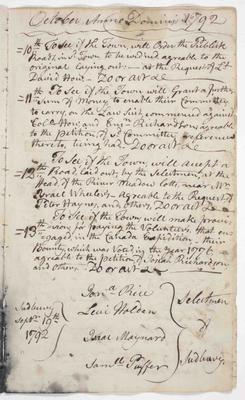 October Anno Domini 1792
10th To See if the Town will Order the Publick
Roads in Town to be wed agreable to the
original laying out — at the Request of Lt
David How — Do or act &c
11th To See if the Town will Grant a further
Sum of Money to enable their Committee
to carry on the Law Suit commenced against
Col. How and Ensn Richardson agreable
to the petition of sd Committee, or reference
thereto, being had Do or act &c
12th To See if the Town will accept a
Road laid out by the Selectmen, at the
Head of the River Meadow Lotts near Mr
Israel Wheelers agreable to the Request of
Peter Haynes, and others, Do or act &c
13th To See if the Town will make provi-
sion for paying the Volunteers, that en-
gaged in the Canada Expedition their
Bounty which was Voted in the Year 1776
agreable to the petition of Josiah Richardson
and others — Do or act &c
Sudbury
Septr 19th
1792
Jona Rice
Levi Holden
Isaac Maynard
Saml Puffer
Selectmen
of
Sudbury